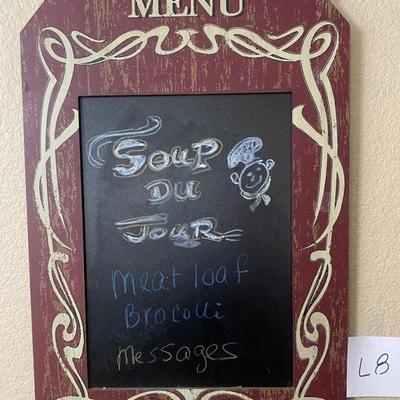 MENU
Soup
Du
Jour
Meat loaf
Brocolli
Messages
L8